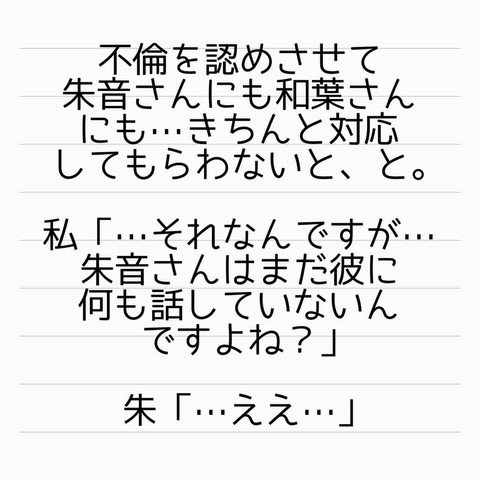 不倫を認めさせて
朱音さんにも和葉さん
にも…きちんと対応
してもらわないと、と。
私「…それなんですが…
朱音さんはまだ彼に
何も話していないん
ですよね？」
朱「…ええ…」